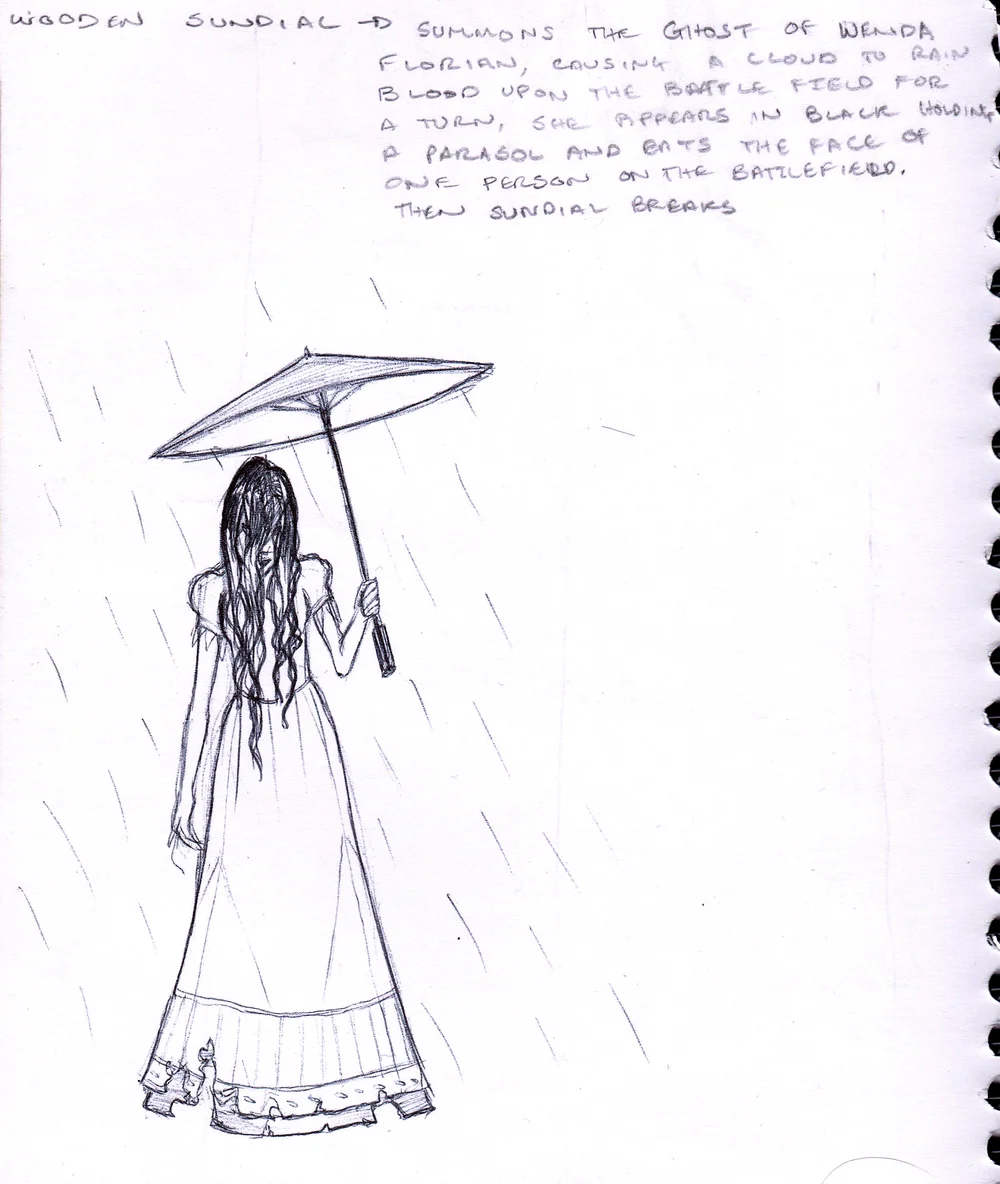 WOODEN SUNDIAL → SUMMONS THE GHOST OF WENDA
FLORIAN, CAUSING A CLOUD TO RAIN
BLOOD UPON THE BATTLE FIELD FOR
A TURN, SHE APPEARS IN BLACK HOLDING
A PARASOL AND EATS THE FACE OF
ONE PERSON ON THE BATTLEFIELD.
THEN SUNDIAL BREAKS